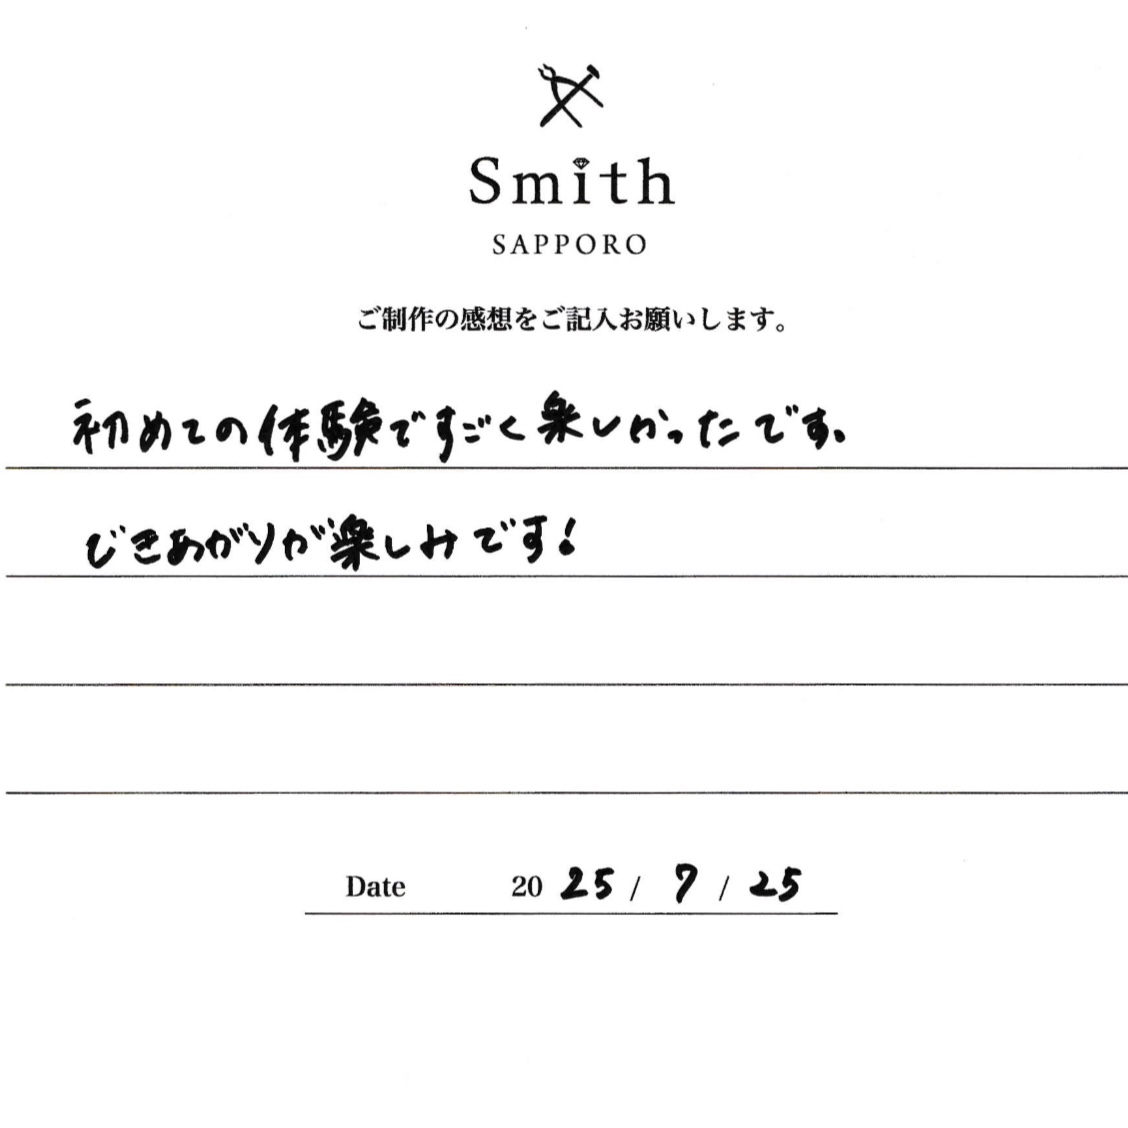 Smith
SAPPORO
ご制作の感想をご記入お願いします。
初めての体験ですごく楽しかったです。
できあがりが楽しみです!
Date 2025 / 7 / 25